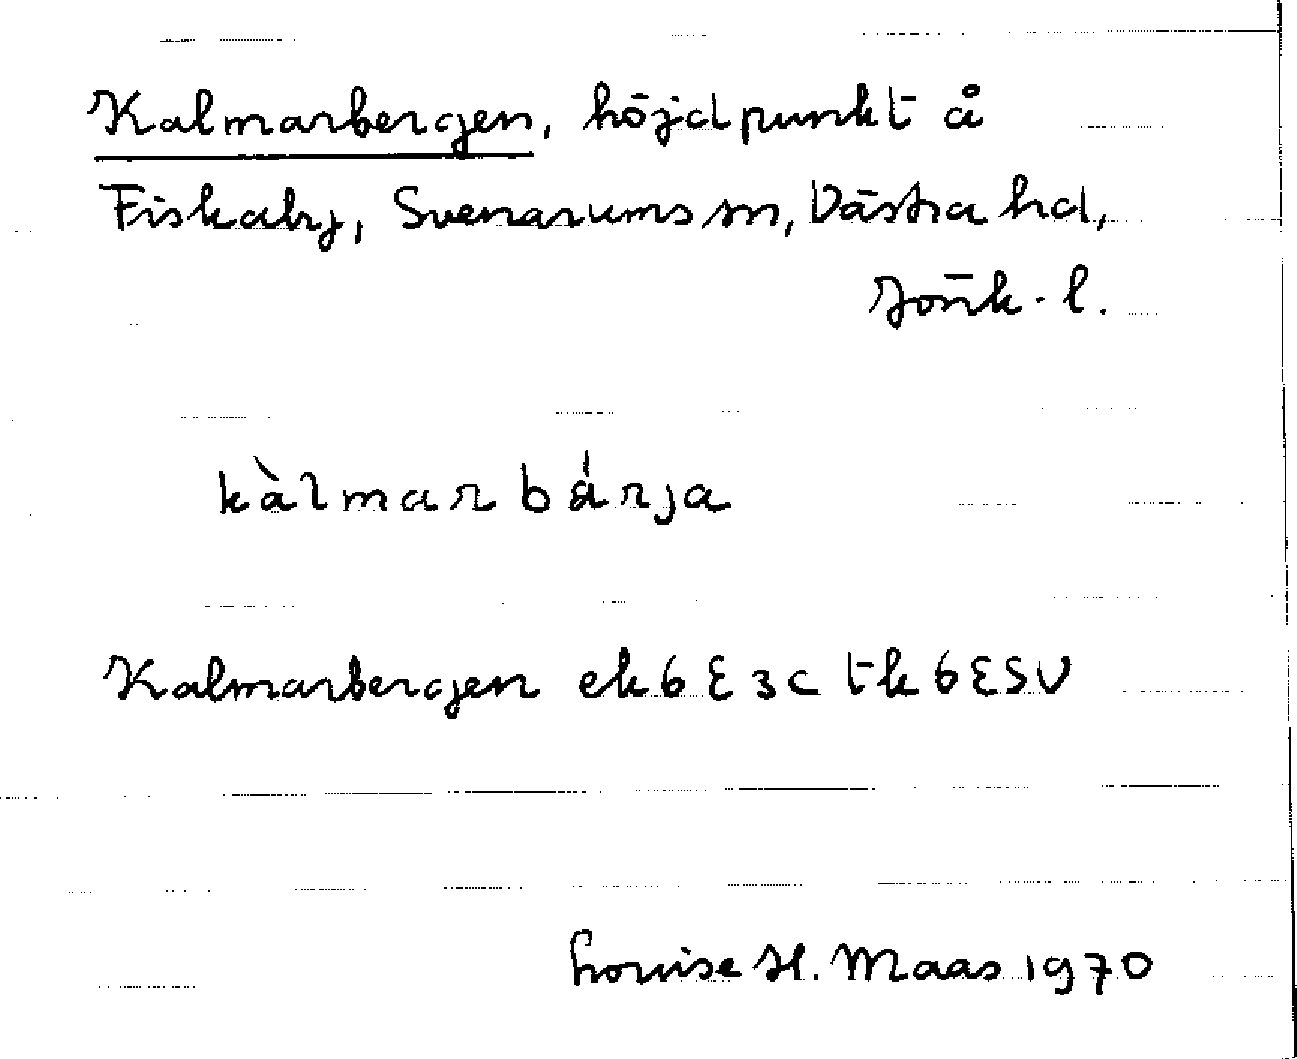 Kalmarbergen, höjdpunkt å
Fiskaby, Svenarums sn, Västra hd,
Jönk. l.
kàlmar bárja
Kalmarbergen ek 6 E 3c tk 6ESV
Louise H. Maas 1970